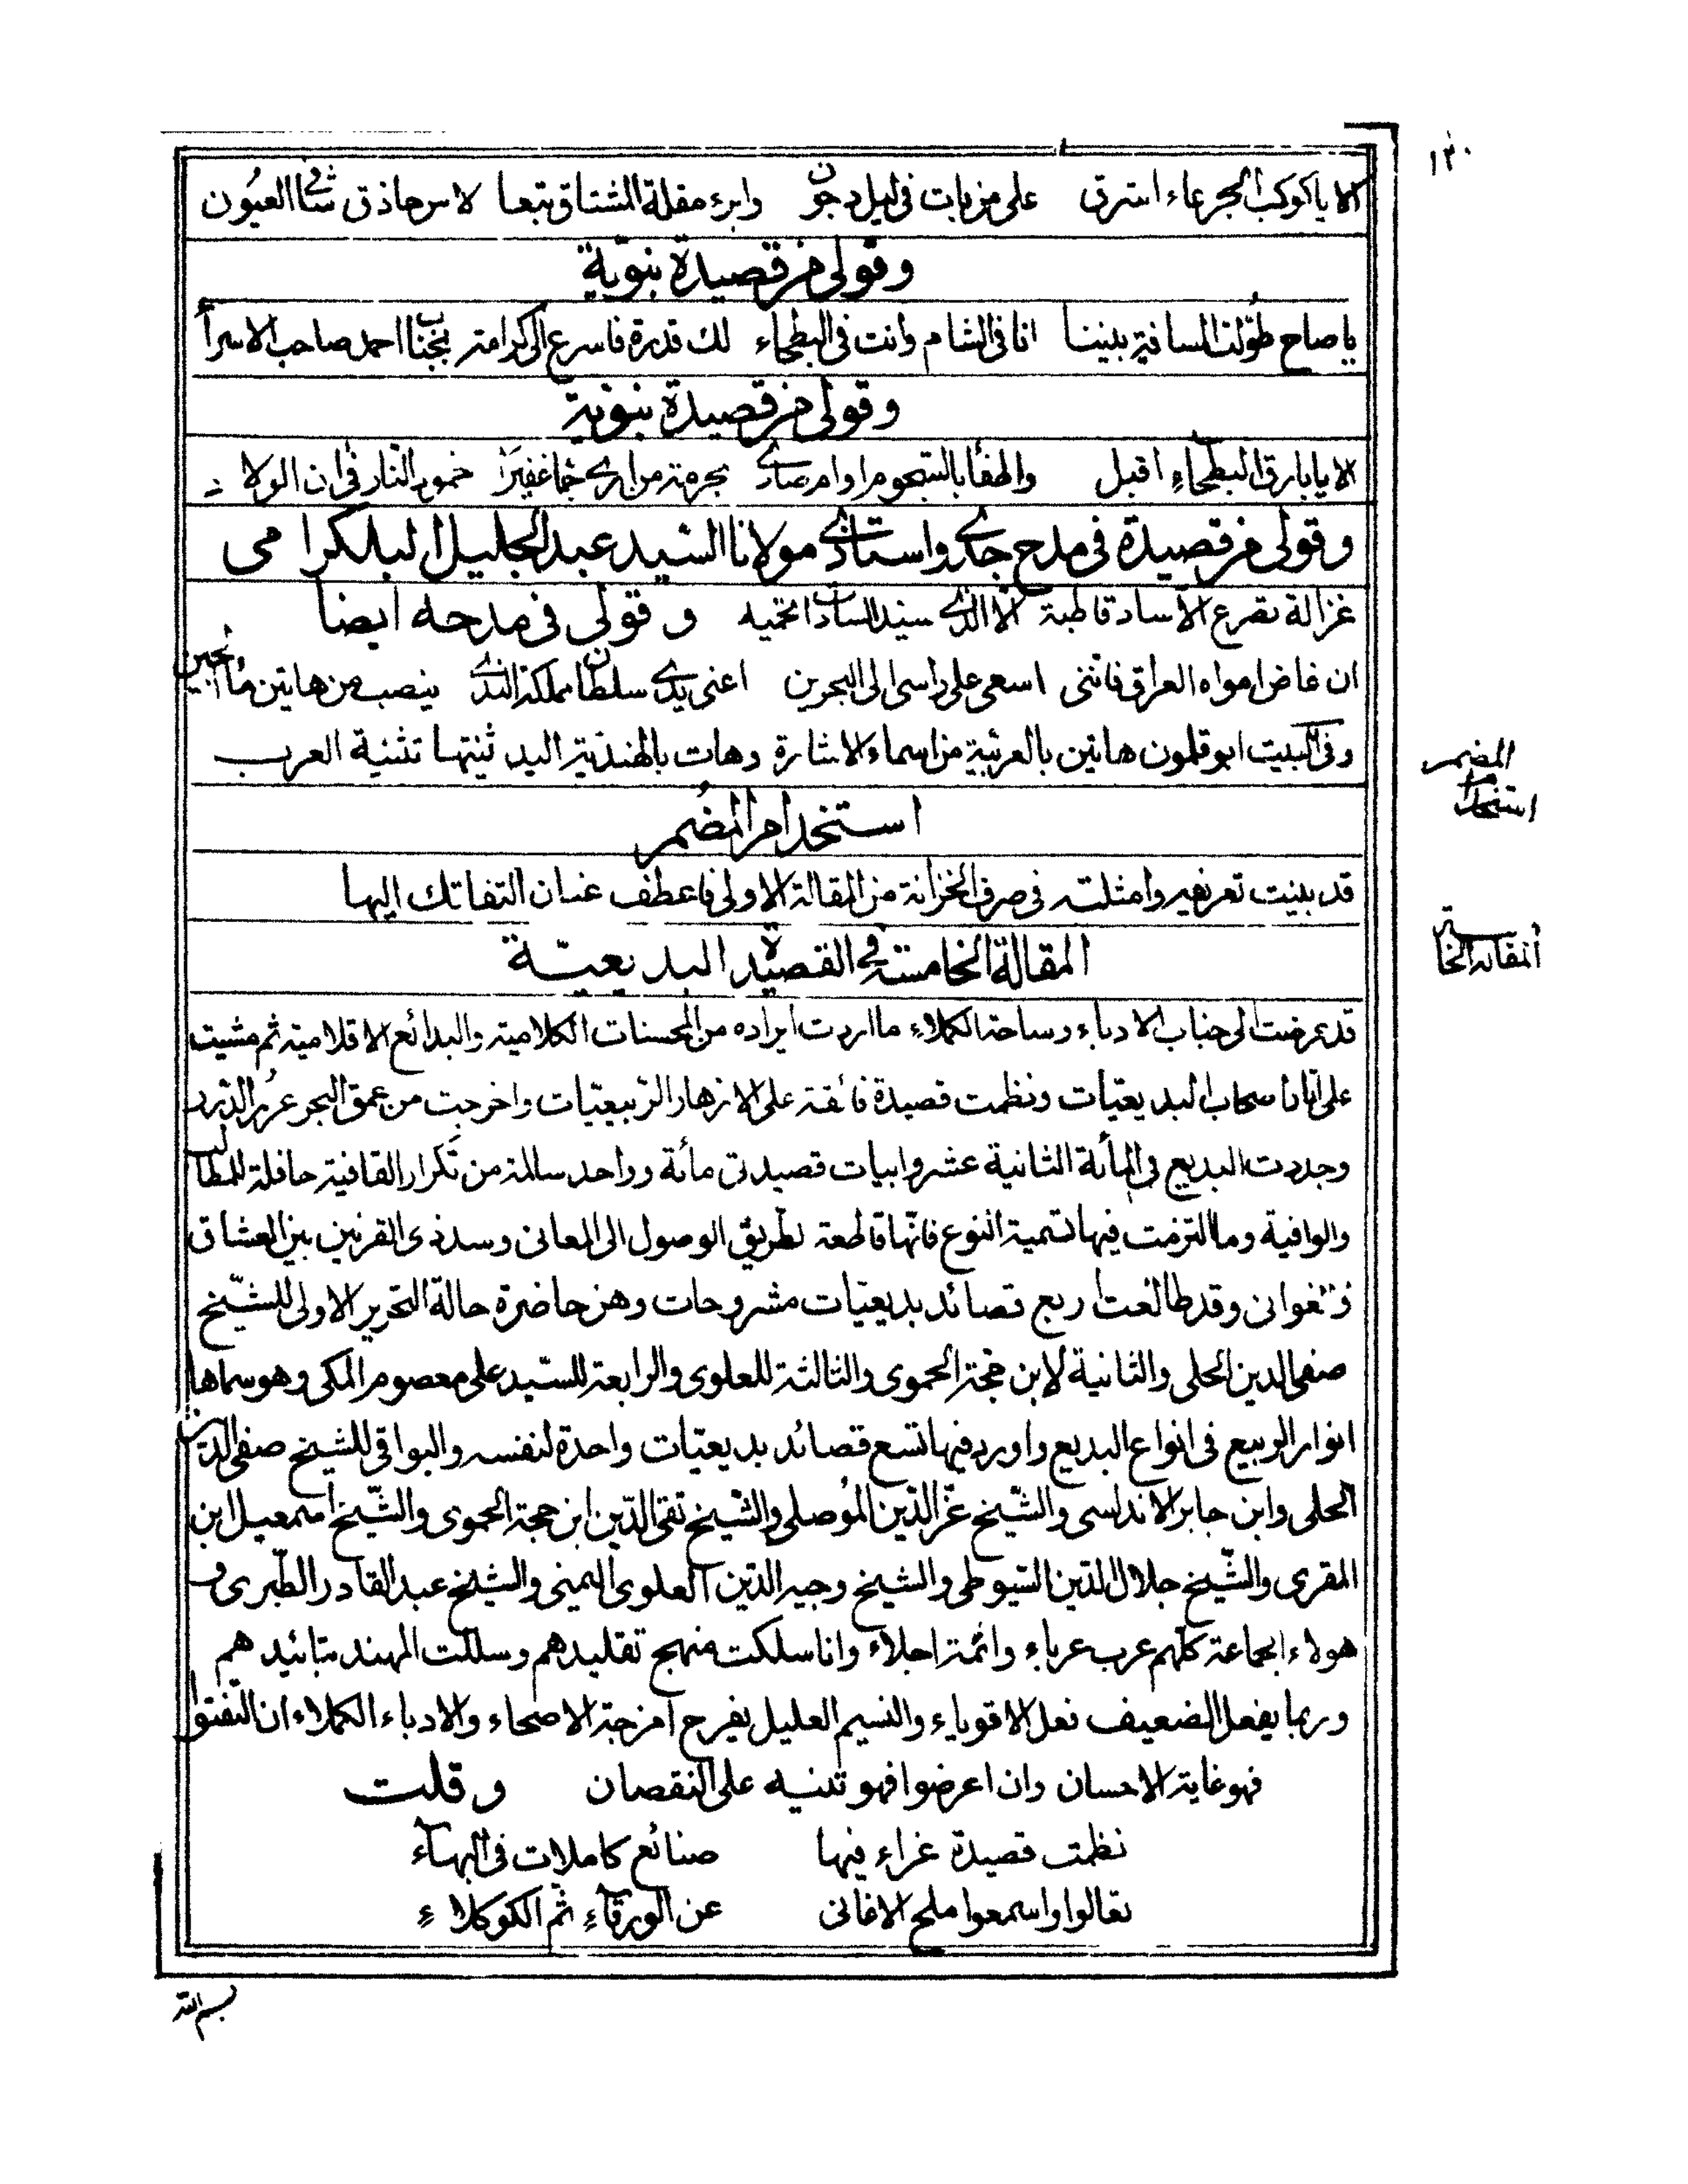 ١٣٠
الا يا كوكب الجرعاء اشرق على من بات فى ليل دجون وابرء مقلة المشتاق تبعا لامر حاذق شافى العيون
وقولى من قصيدة نبوية
يا صاح طولت المسافة بيننا انا فى الشام وانت فى البطحاء لك قدرة فاسرع الى كرامة بجناب احمد صاحب الاسرا
وقولى من قصيدة نبوية
الا يا بارق البطحاء اقبل
وقولى من قصيدة فى مدح جدى واستاذى مولانا السيد عبد الجليل البلكرامى
غزالة تصرع الآساد قاطبة الا الذى سيد السادات يحميه وقولى فى مدحه ايضا
ان غاض امواه العراق فاننى اسعى على راسى الى البحرين اعنى يدى سلطان مملكة الندى ينصب من هاتين ماء لجين
وفى البيت ابو قلمون هاتين بالعربية من اسماء الاشارة وهات بالهندية اليد ثنيتها تثنية العرب
المضمر
استخدام
استخدام المضمر
قد بينت تعريفه وامثلته فى صرف الخزانة من المقالة الاولى فاعطف عنان التفاتك اليها
المقالة الخامسة
المقالة الخامسة فى القصيدة البديعية
قد عرضت الى جناب الادباء وساحة الكملاء ما اردت ايراده من المحسنات الكلامية والبدائع الاقلامية ثم مشيت
على آثار اصحاب البديعيات ونظمت قصيدة فائقة على الازهار الربيعيات واخرجت من عمق البحر غرر الدرر
وجددت البديع فى المأئة الثانية عشر وابيات قصيدتى مأئة وواحد سالمة من تكرار القافية حافلة للمطالب
والوافية وما التزمت فيها تسمية النوع فانها قاطعة لطريق الوصول الى المعانى وسد ذى القرنين بين العشاق
والغوانى وقد طالعت اربع قصائد بديعيات مشروحات وهن حاضرة حالة التحرير الاولى للشيخ
صفى الدين الحلى والثانية لابن حجة الحموى والثالثة للعلوى والرابعة للسيد على معصوم المكى وهو سماها
انوار الربيع فى انواع البديع واورد فيها تسع قصائد بديعيات واحدة لنفسه والبواقى للشيخ صفى الدين
الحلى وابن جابر الاندلسى والشيخ عز الدين الموصلى والشيخ تقى الدين ابن حجة الحموى والشيخ اسمعيل ابن
المقرى والشيخ جلال الدين السيوطى والشيخ وجيه الدين العلوى اليمنى والشيخ عبد القادر الطبرى و
هولاء الجماعة كلهم عرب عرباء وائمة اجلاء وانا سلكت منهج تقليدهم وسللت المهند بتائيدهم
وربما يفعل الضعيف فعل الاقوياء والنسيم العليل يفرح امزجة الاصحاء والادباء الكملاء ان التفتوا
فهو غاية الاحسان وان اعرضوا فهو تنبيه على النقصان وقلت
نظمت قصيدة غراء فيها صنائع كاملات فى البهاء
تعالوا واسمعوا ملح الاغانى عن الورقاء ثم الكوكلاء
بسم الله